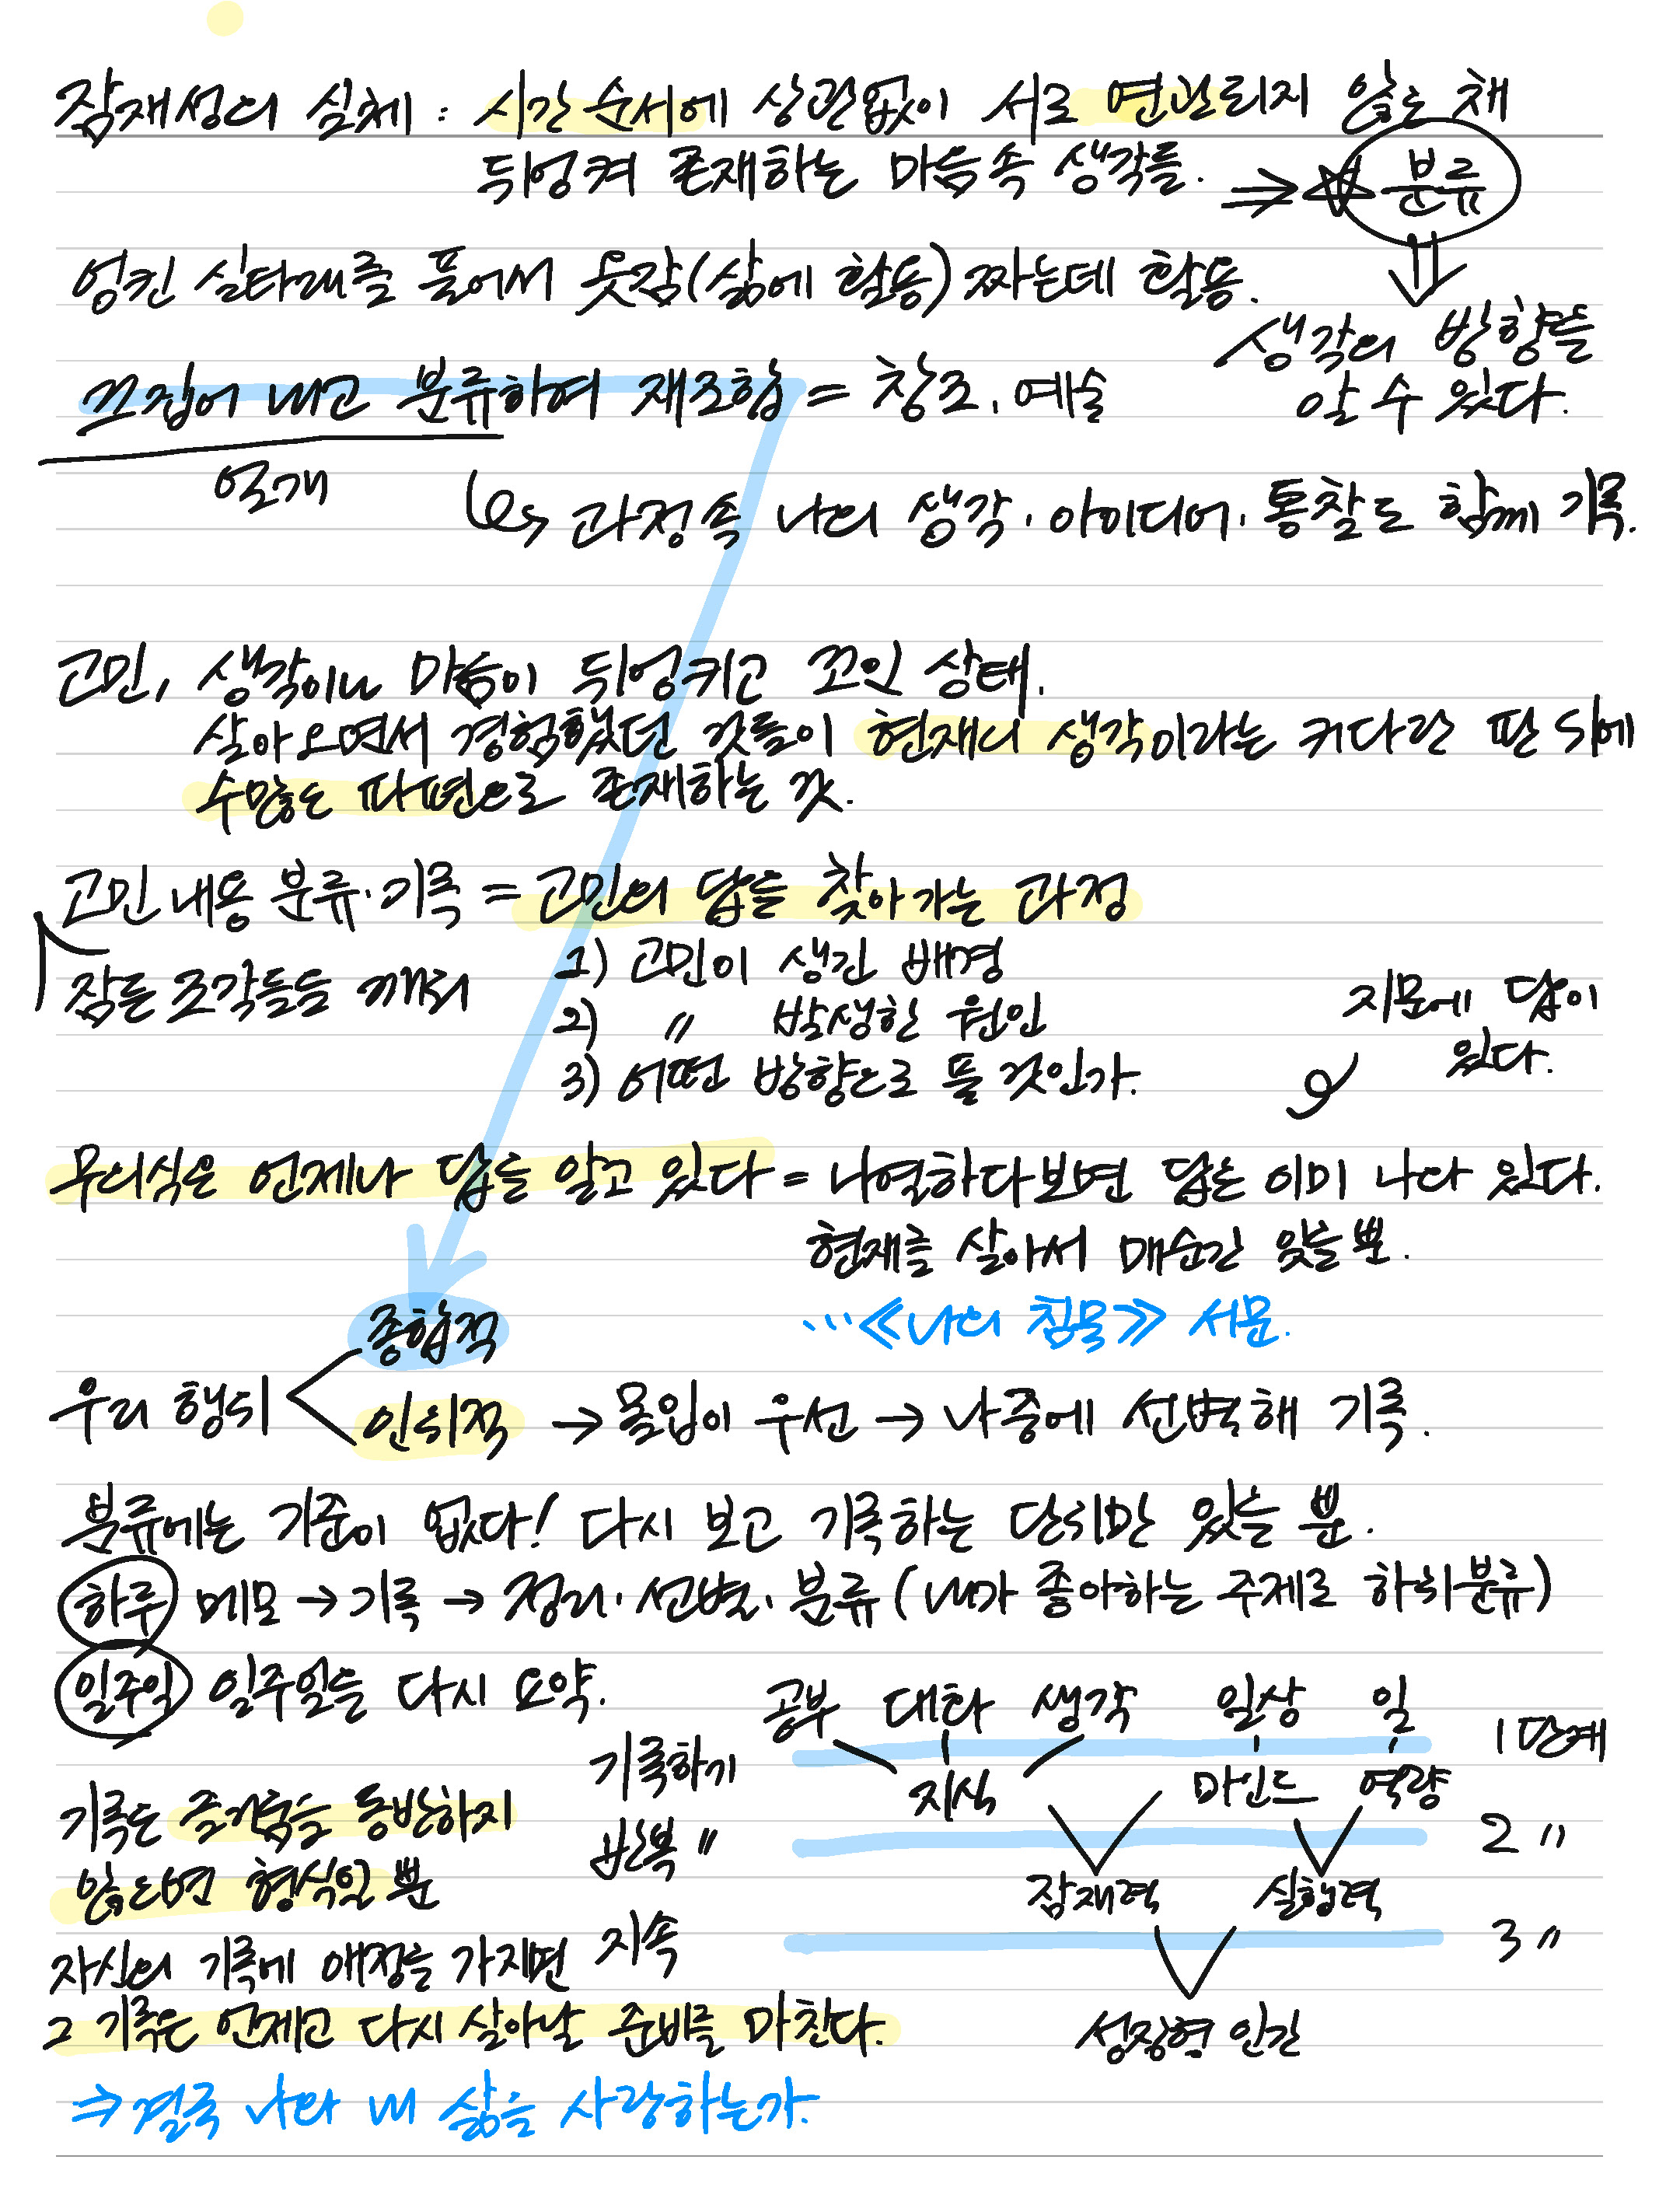 잠재성의 실체 : 시간 순서에 상관없이 서로 연관되지 않은 채
뒤엉켜 존재하는 마음속 생각들. ⇒ ☆ 분류
엉킨 실타래를 풀어서 옷감(삶에 활용) 짜는데 활용.
생각의 방향을
알 수 있다.
끄집어 내고 분류하여 재조합 = 창조, 예술
얼개
↳ 과정 속 나의 생각·아이디어·통찰도 함께 기록.
고민, 생각이나 마음이 뒤엉키고 꼬인 상태.
살아오면서 경험했던 것들이 현재의 생각이라는 커다란 판 위에
수많은 파편으로 존재하는 것.
고민 내용 분류·기록 = 고민의 답을 찾아가는 과정
잠든 조각들을 깨워
1) 고민이 생긴 배경
2) 〃 발생한 원인
3) 어떤 방향으로 풀 것인가.
지문에 답이
있다.
무의식은 언제나 답을 알고 있다 = 나열하다보면 답은 이미 나와 있다.
현재를 살아서 매순간 잊을 뿐.
…≪나의 침묵≫ 서문.
우리 행위
종합적
인위적 → 몰입이 우선 → 나중에 선별해 기록.
분류에는 기준이 없다! 다시 보고 기록하는 단위만 있을 뿐.
하루 메모 → 기록 → 정리·선별·분류 (내가 좋아하는 주제로 하위분류)
일주일 일주일을 다시 요약.
공부 대화 생각 일상 일
기록하기 1단계
지식 마인드 역량
반복 〃 2 〃
잠재력 실행력
지속 3 〃
성장형 인간
기록은 즐거움을 동반하지
않으면 형식일 뿐
자신의 기록에 애정을 가지면
그 기록은 언제고 다시 살아날 준비를 마친다.
⇒ 결국 나와 내 삶을 사랑하는가.